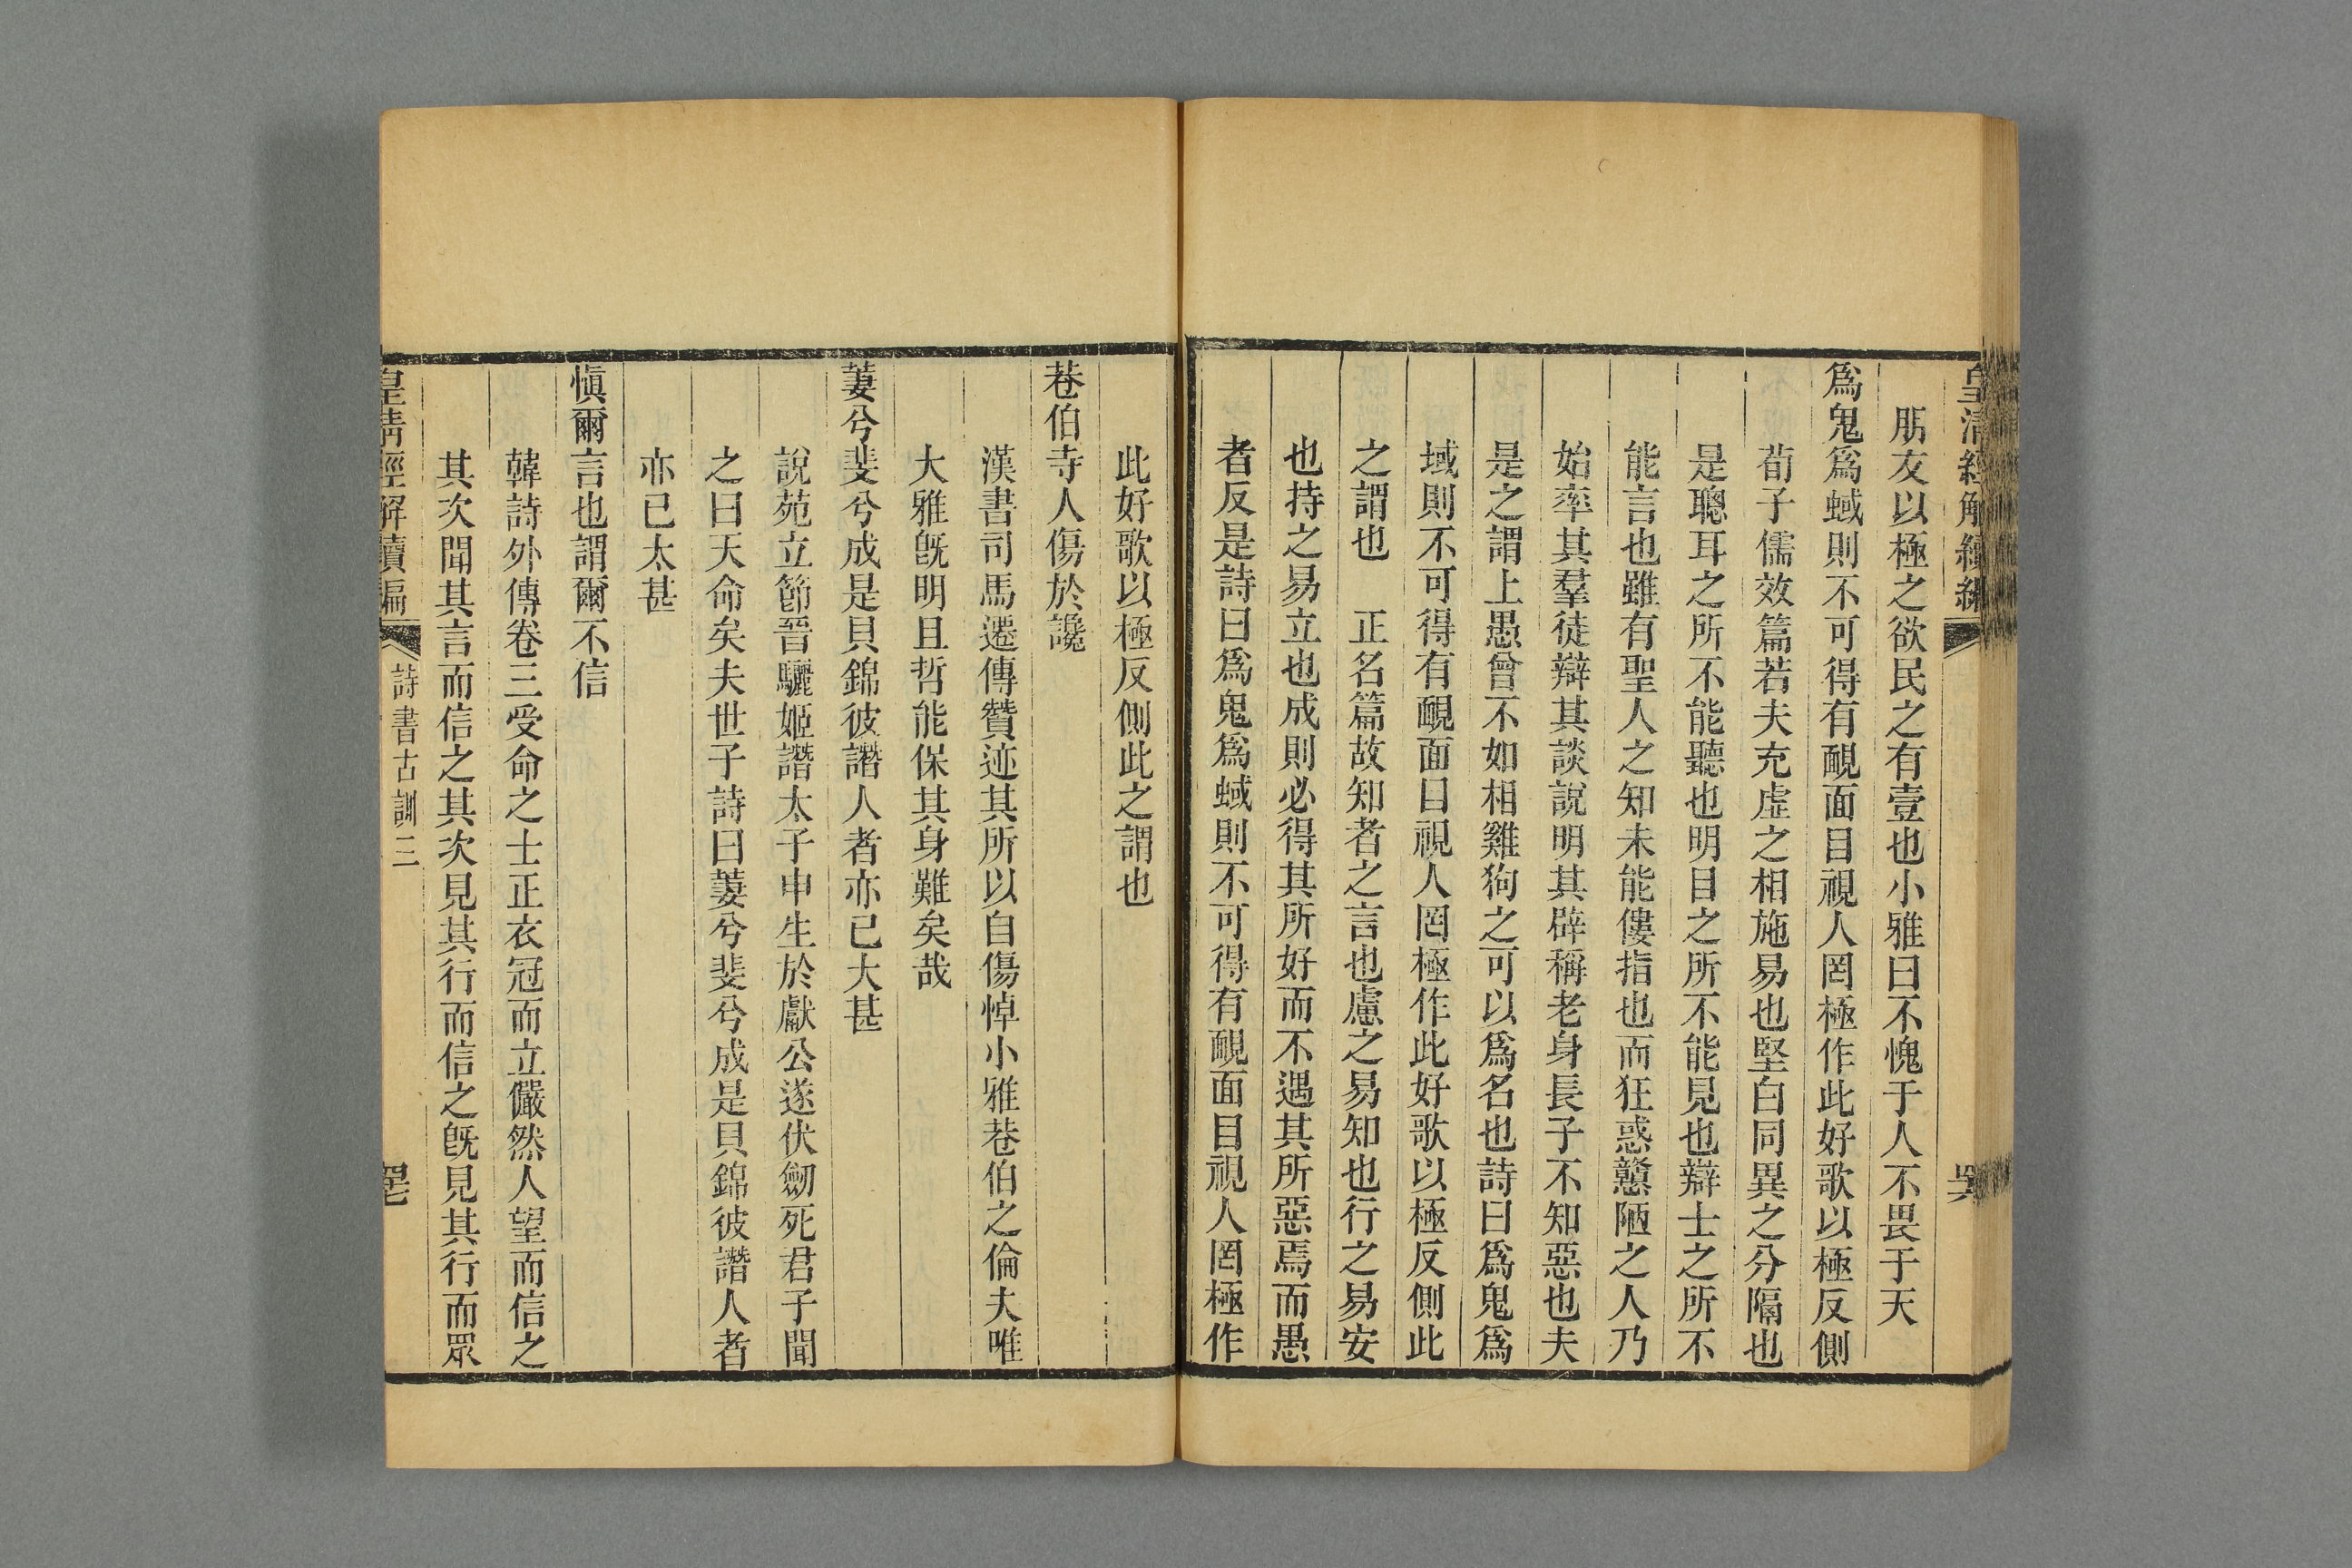 皇清經解續編
哭
朋友以極之欲民之有壹也小雅曰不愧于人不畏于天
爲鬼爲蜮則不可得有靦面目視人罔極作此好歌以極反側
荀子儒效篇若夫充虛之相施易也堅白同異之分隔也
是聰耳之所不能聽也明目之所不能見也辯士之所不
能言也雖有聖人之知未能僂指也而狂惑戇陋之人乃
始率其羣徒辯其談說明其辟稱老身長子不知惡也夫
是之謂上愚曾不如相雞狗之可以爲名也詩曰爲鬼爲
蜮則不可得有靦面目視人罔極作此好歌以極反側此
之謂也　正名篇故知者之言也慮之易知也行之易安
也持之易立也成則必得其所好而不遇其所惡焉而愚
者反是詩曰爲鬼爲蜮則不可得有靦面目視人罔極作
此好歌以極反側此之謂也
巷伯寺人傷於讒
漢書司馬遷傳贊迹其所以自傷悼小雅巷伯之倫夫唯
大雅旣明且哲能保其身難矣哉
萋兮斐兮成是貝錦彼譖人者亦已大甚
說苑立節晉驪姬譖太子申生於獻公遂伏劒死君子聞
之曰天命矣夫世子詩曰萋兮斐兮成是貝錦彼譖人者
亦已太甚
愼爾言也謂爾不信
韓詩外傳卷三受命之士正衣冠而立儼然人望而信之
其次聞其言而信之其次見其行而信之旣見其行而眾
皇清經解續編
詩書古訓三